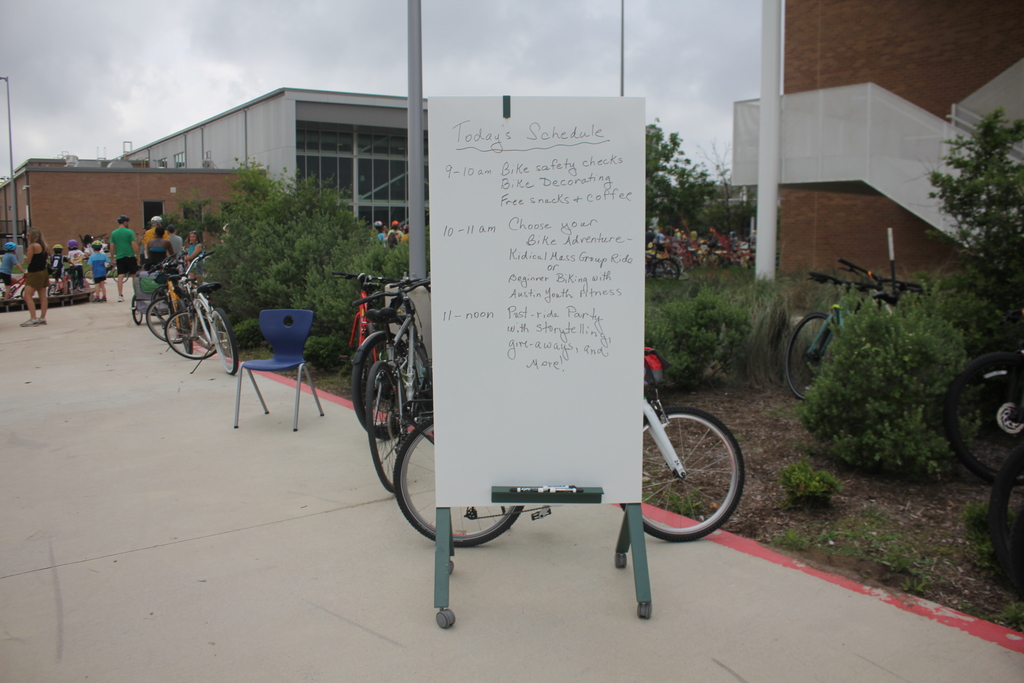 Today's Schedule
9-10 am Bike safety checks
Bike Decorating
Free snacks + coffee
10-11 am Choose your
Bike Adventure-
Kidical Mass Group Ride
or
Beginner Biking with
Austin Youth Fitness
11-noon Post-ride Party
with storytelling,
give-aways, and
More!